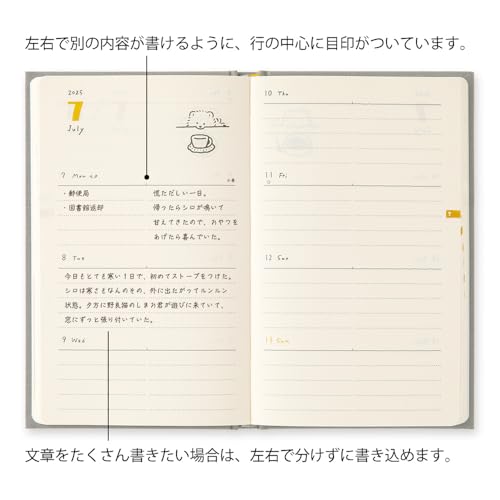 左右で別の内容が書けるように、行の中心に目印がついています。
2025
7
July
7 Mon
・郵便局
・図書館返却
慌ただしい一日。
帰ったらシロが鳴いて
甘えてきたので、おやつを
あげたら喜んでいた。
8 Tue
今日もとても寒い1日で、初めてストーブをつけた。
シロは寒さもなんのその、外に出たがってルンルン
状態。夕方に野良猫のしまお君が遊びに来ていて、
窓にずっと張り付いていた。
9 Wed
10 Thu
11 Fri
12 Sat
13 Sun
7
文章をたくさん書きたい場合は、左右で分けずに書き込めます。